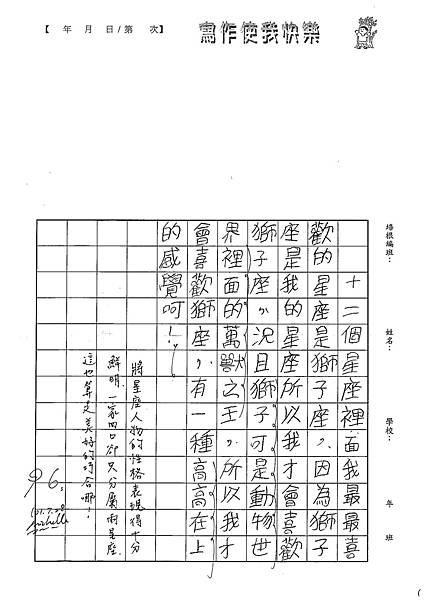 【 年 月 日/第 次】
寫作使我快樂
培根編班：
姓名：
學校：
年 班
十二個星座裡面我最最喜
歡的星座是獅子座，因為獅子
座是我的星座所以我才會喜歡
獅子座，況且獅子可是動物世
界裡面的萬獸之王，所以我才
會喜歡獅座，有一種高高在上
的感覺呵！
將星座人物的性格表現得十分
鮮明，一家四口卻只分屬兩星座，
這也算是美好的巧合哪！
96.